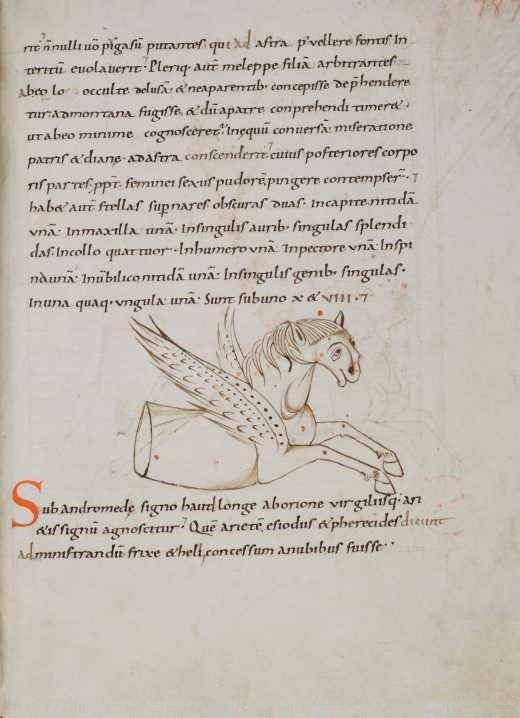 rit⁊ nnulli uō pigasū putantes· qui ad astra pꝰ vellere fontis In
teritū euolauerit· Pleriq· aut̄ meleppe filiā arbitrantes
abeo lo occulte delusā· & neaparentib· concepisse dep̄hendere
tur admontana fugisse· & dū apatre conprehendi timere&·
ut abeo minime cognosceret᷑ Inequū conversā· miseratione
patris & diane· ad astra conscenderit⁊ cuius posteriores corpo
ris partes· ppt̄· feminei sexus pudorē pingere contempser̄· ⁊
hab& aut̄ stellas sup nares· obscuras duas· Incapite nitidā
vnā· Inmaxilla unā· Insingulis aurib· singulas splendi
das· Incollo quattuor·· Inhumero vnā· Inpectore vnā· Inspi
nā unā· Inūbilico nitidā unā· Insingulis genib· singulas·
In una quaq· vngula unā· Sunt sub uno x & VIIII·⁊
Sub andromede signo haud longe aborione virgiliisq· ari
&is signū agnoscitur⁊ Quē arietē esiodus & pherecides dicunt
administrandū frixe & helle concessum anubibus fuisse··